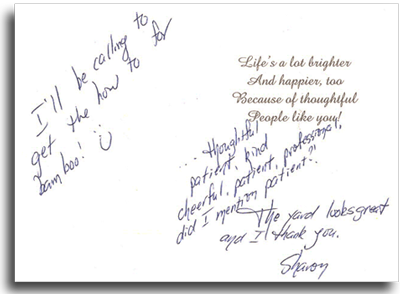 I'll be calling to
get the how to for
bamboo! :)
Life's a lot brighter
And happier, too
Because of thoughtful
People like you!
... thoughtful
patient, kind
cheerful, patient, professional,
did I mention patient?!
The yard looks great
and I thank you.
Sharon